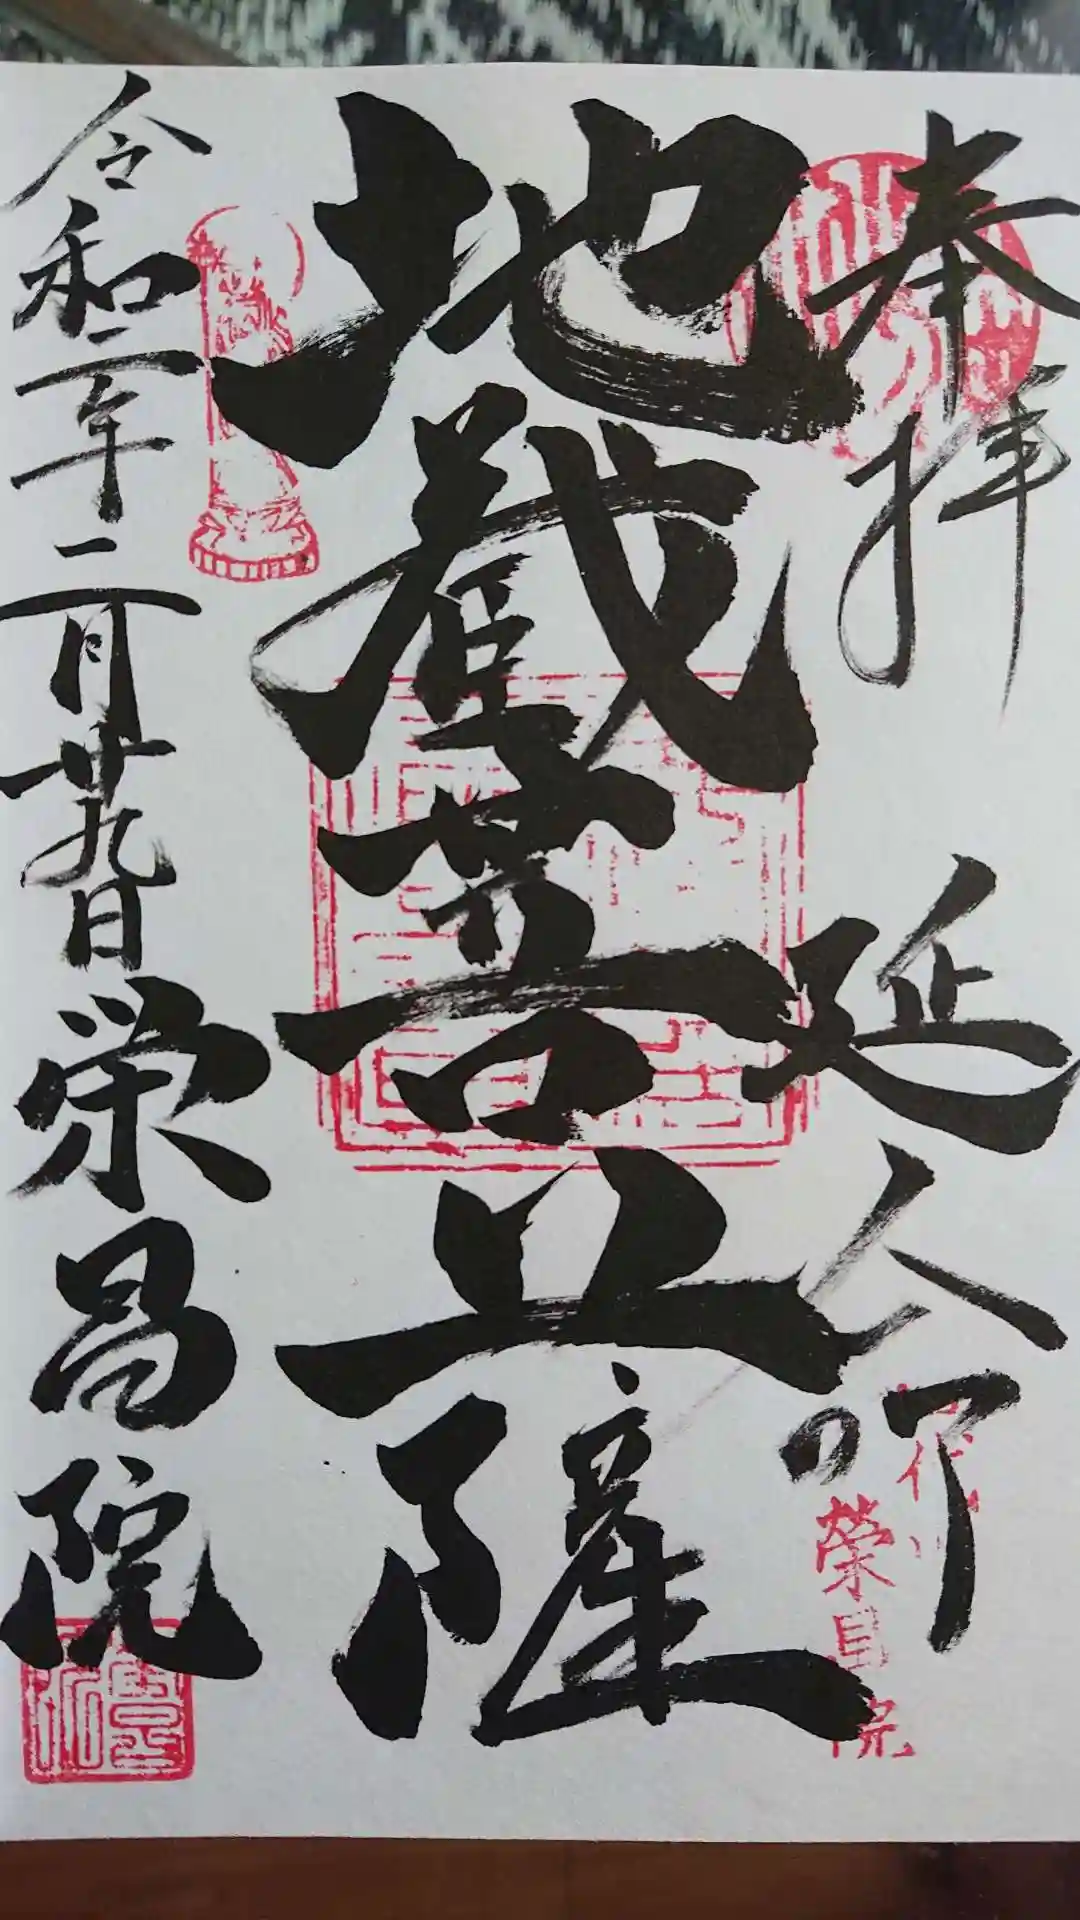 奉拝 延命
地蔵菩薩
令和二年二月廿九日 栄昌院
榮昌院